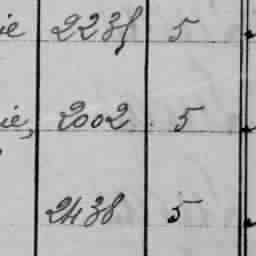 ie 2235 5
ie, 2002 5
2438 5